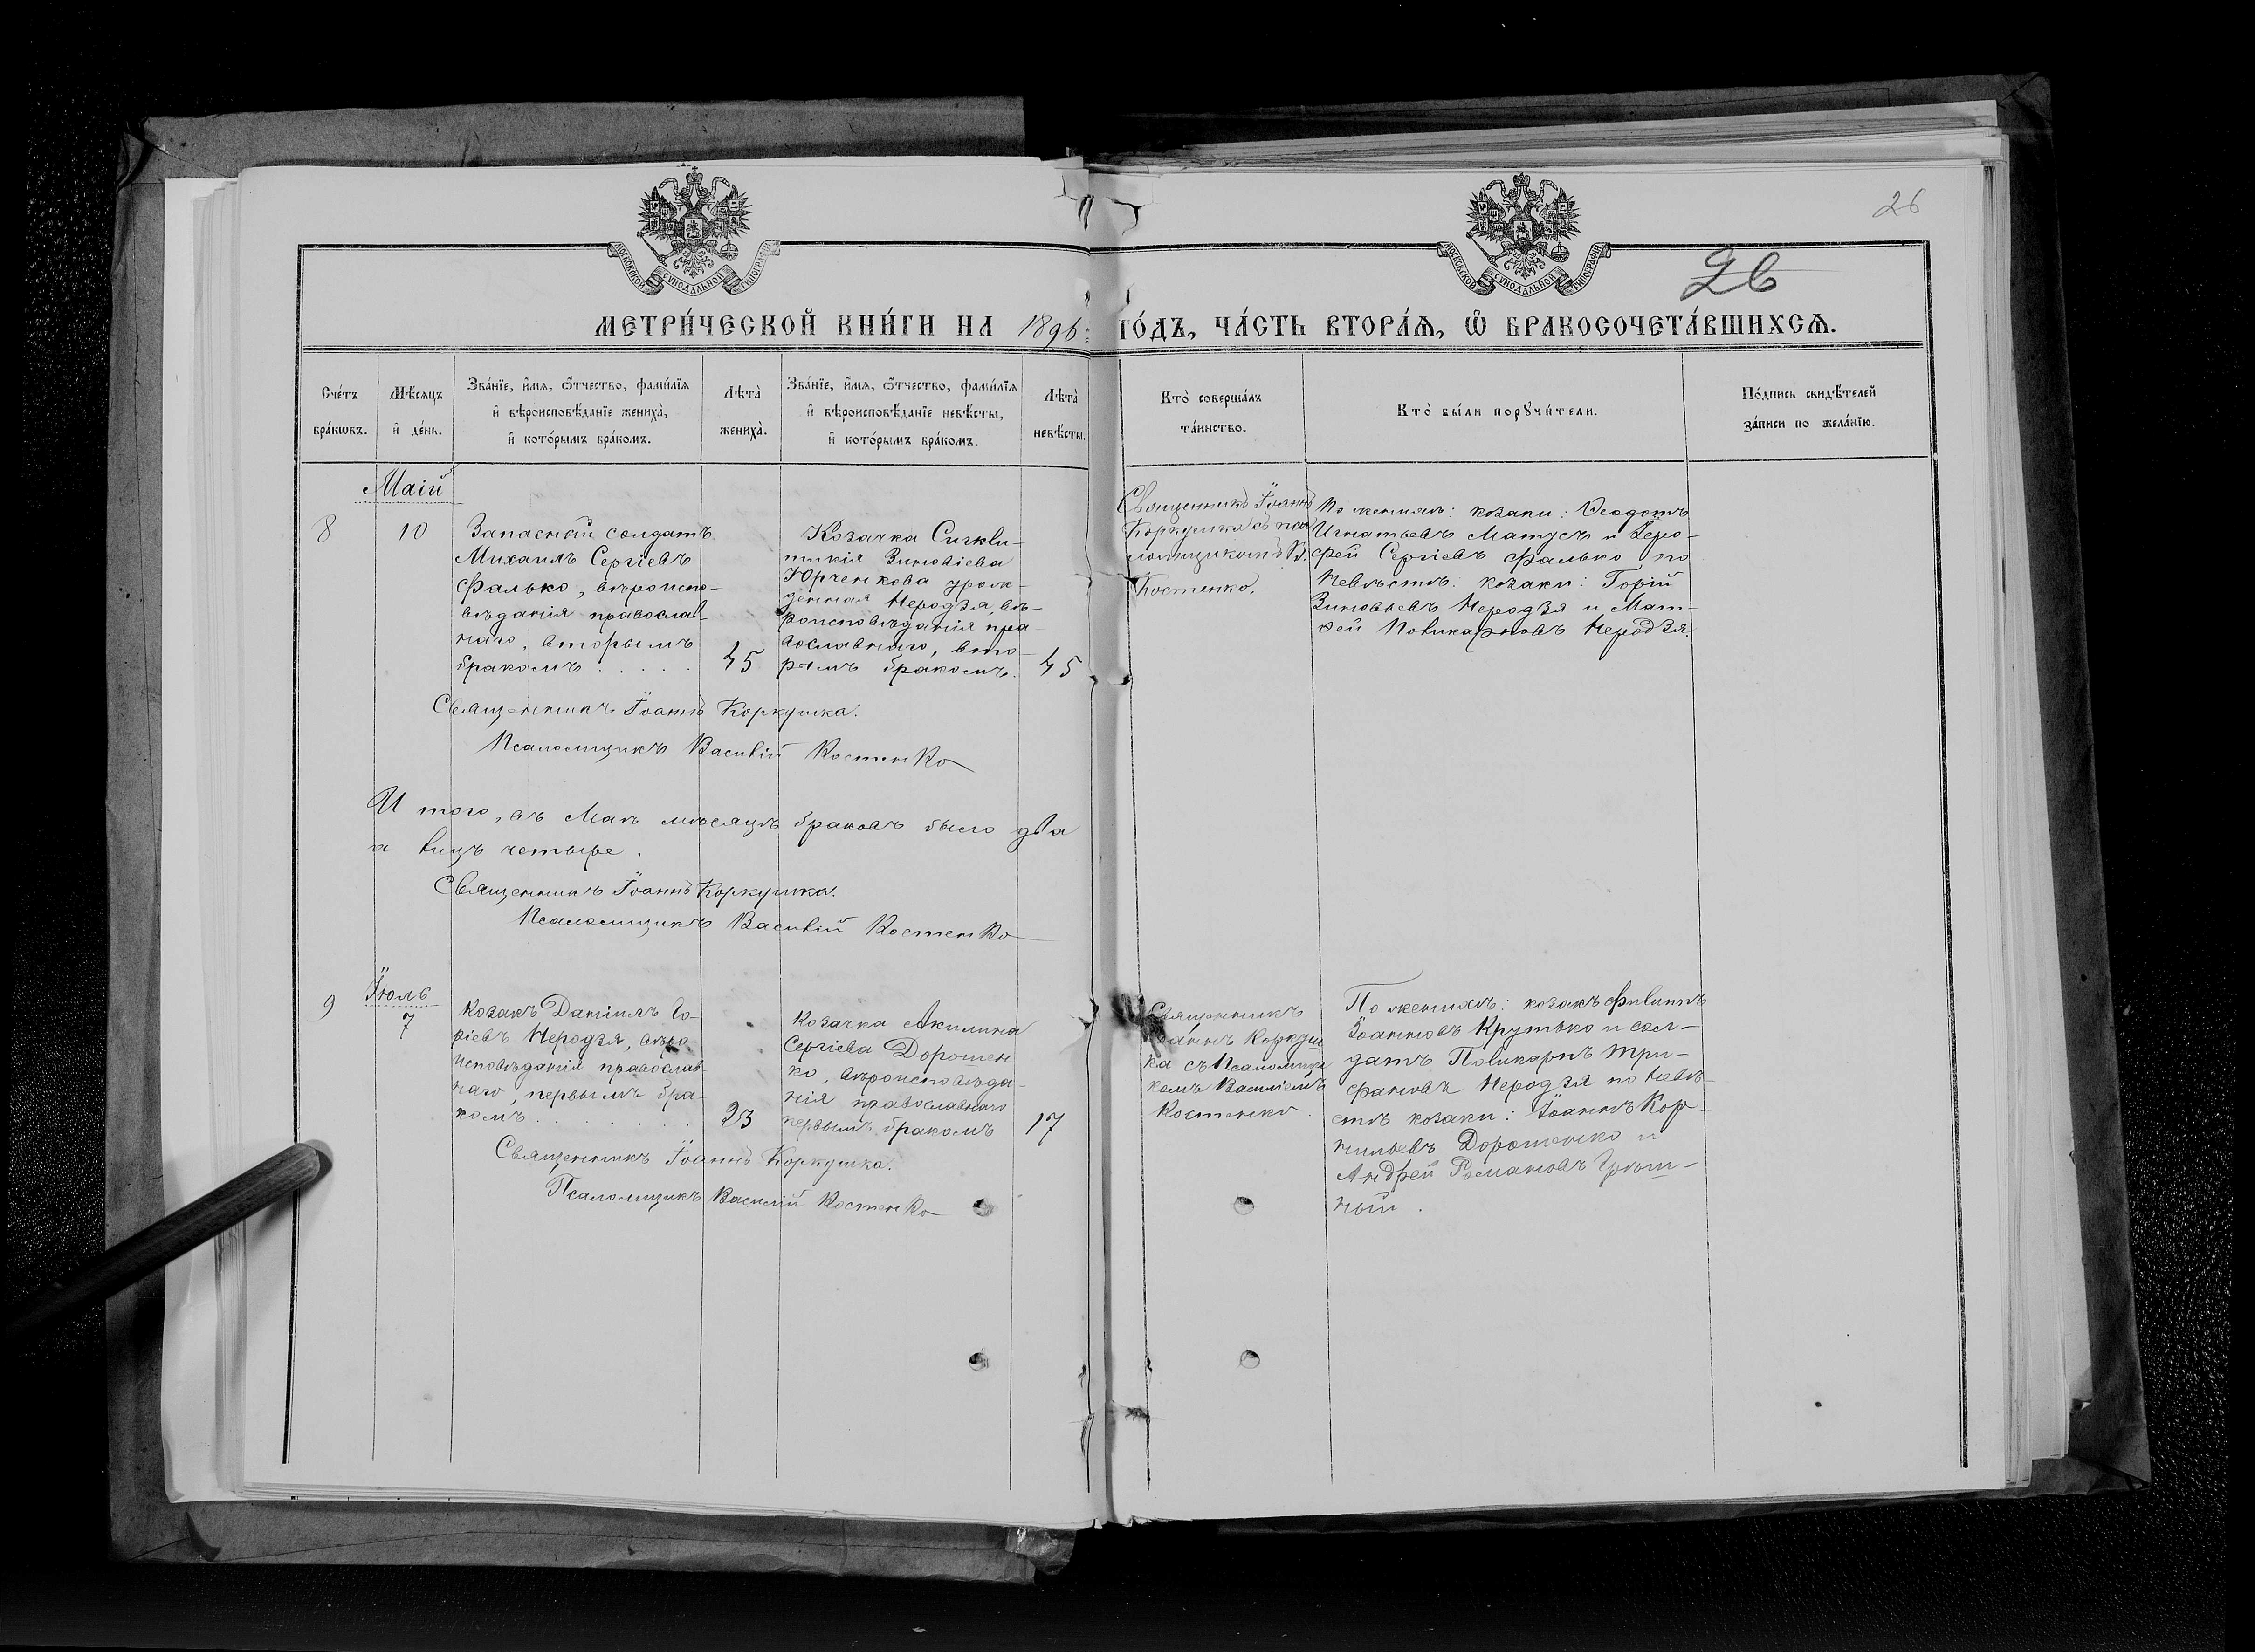 26
26
МОСКОВСКОЙ СѴНОДАЛЬНОЙ ТИПОГРАФІИ
МОСКОВСКОЙ СѴНОДАЛЬНОЙ ТИПОГРАФІИ
МЕТРИ́ЧЕСКОЙ КНИ́ГИ НА 1896: ГО́ДЪ, ЧА́СТЬ ВТОРА́Я, Ѽ БРАКОСОЧЕТА́ВШИХСЯ.
Сче́тъ
бра́кѡвъ.
Мѣ́сяцъ
и҆ де́нь.
Зва́нїе, и҆́мѧ, ѻ҆́тчество, фами́лїѧ
и҆ вѣроисповѣ́данїе жениха̀,
и҆ кото́рымъ бра́комъ.
Лѣ́та̀
жениха̀.
Зва́нїе, и҆́мѧ, ѻ҆́тчество, фами́лїѧ
и҆ вѣроисповѣ́данїе невѣ́сты,
и҆ кото́рымъ бра́комъ.
Лѣ́та̀
невѣ́сты.
Кто̀ соверша́лъ
та́инство.
Кто̀ бы́ли порꙋчи́тели.
По́дпись свидѣ́телей
за́писи по жела́нїю.
Маій
8
10
Запасный солдатъ
Михаилъ Сергіевъ
Фалько, вѣроиспо-
вѣданія православ-
наго, вторымъ
бракомъ . . . . .
45
Козачка Сигкли-
тикія Зиновіева
Юрченкова урож-
денная Неродзя, вѣ-
роисповѣданія пра-
вославнаго, вто-
рымъ бракомъ.
45
Священникъ Іоаннъ
Коркушка съ псал
ломщикомъ В.
Костенко.
По женихѣ: козаки: Ѳеодотъ
Игнатьевъ Матусъ и Геро-
фей Сергіевъ Фалько, по
Невѣстѣ: козаки: Горій
Зиновьевъ Неродзя и Мат-
фей Поликарповъ Неродзя.
Священникъ Іоаннъ Коркушка.
Псаломщикъ Василій Костенко
И того, въ Маѣ мѣсяцѣ браковъ было два
а лицъ четыре.
Священникъ Іоаннъ Коркушка.
Псаломщикъ Василій Костенко
Іюль
9
7
Козакъ Даніилъ Го-
ріевъ Неродзя, вѣро-
исповѣданія православ-
наго, первымъ бра-
комъ . . . . . . . .
23
Козачка Акилина
Сергіева Дорошен
ко, вѣроисповѣда-
нія православнаго
первымъ бракомъ
17
Священникъ
Іоаннъ Коркуш
ка съ Псаломщи
комъ Василіемъ
Костенко.
По женихѣ: козакъ Филиппъ
Іоанновъ Крутько и сол-
датъ Поликарпъ Три-
фановъ Неродзя по Невѣ-
стѣ козаки: Іоаннъ Кор-
нильевъ Дорошенко и
Андрей Романовъ Грѣш-
ный.
Священникъ Іоаннъ Коркушка.
Псаломщикъ Василій Костенко